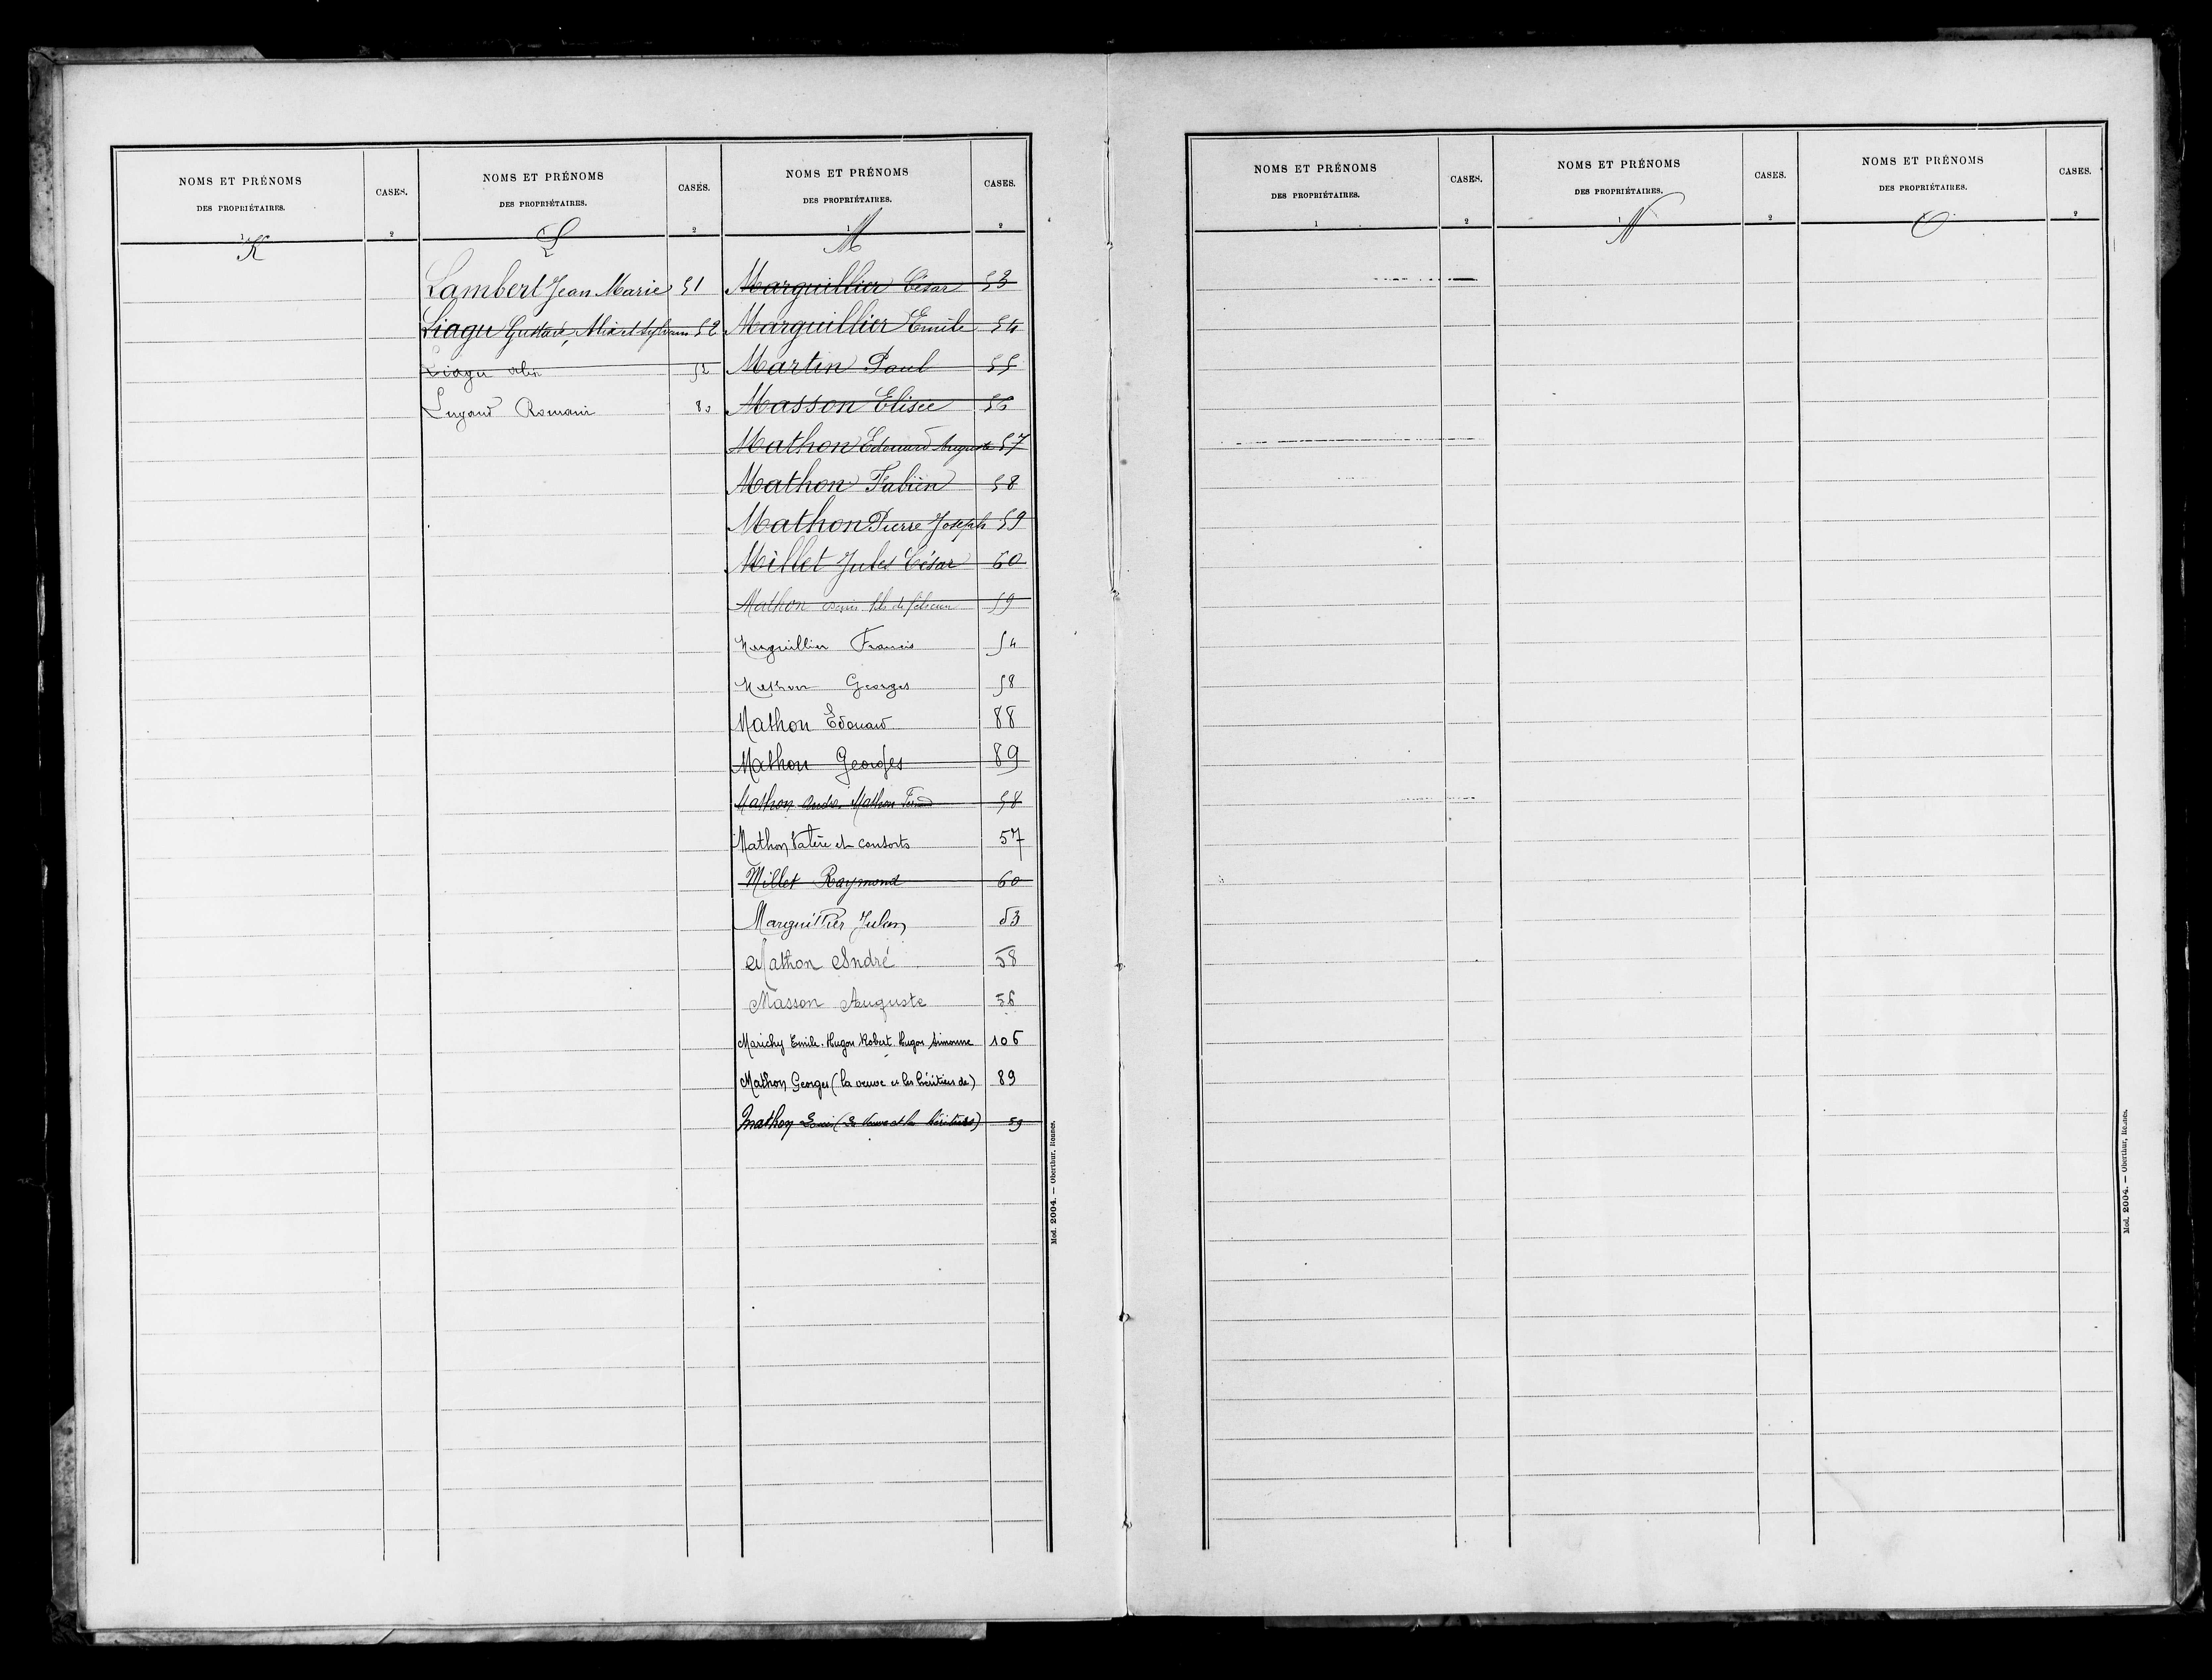 NOMS ET PRÉNOMS
DES PROPRIÉTAIRES.
CASES.
1
2
K
NOMS ET PRÉNOMS
DES PROPRIÉTAIRES.
CASES.
1
2
L
Lambert Jean Marie 51
Liagu Gustave, Alix et Sylvain 52
Liagu Alix 52
Lugand Romain 80
NOMS ET PRÉNOMS
DES PROPRIÉTAIRES.
CASES.
1
2
M
Marguillier César 53
Marguillier Emile 54
Martin Paul 55
Masson Elisée 56
Mathon Edouard Auguste 57
Mathon Fabien 58
Mathon Pierre Joseph 59
Millet Jules César 60
Mathon fils de 59
Marguillier Francis 54
Mathon Georges 58
Mathon Edouard 88
Mathon Georges 89
Mathon André Mathon 58
Mathon Valère et consorts 57
Millet Raymond 60
Marguillier Julien 53
Mathon André 58
Masson Auguste 56
Marichy Emile. Hugon Robert Hugon Simonne 106
Mathon Georges (la veuve et les héritiers de) 89
Mathon (la Veuve et les héritiers) 59
Mod. 2004. — Oberthur, Rennes.
NOMS ET PRÉNOMS
DES PROPRIÉTAIRES.
CASES.
1
2
NOMS ET PRÉNOMS
DES PROPRIÉTAIRES.
CASES.
1
2
N
NOMS ET PRÉNOMS
DES PROPRIÉTAIRES.
CASES.
1
2
O
Mod. 2004. — Oberthur, Rennes.